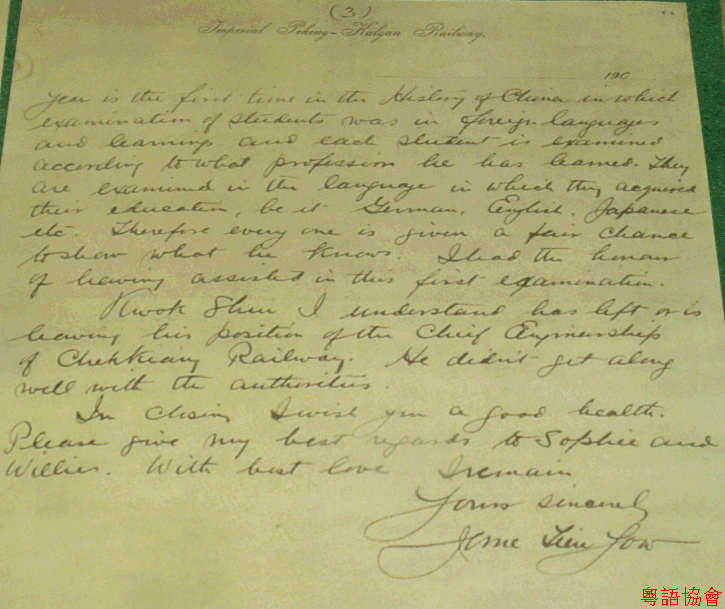 (3)
Imperial Peking-Kalgan Railway.
190
year is the first time in the History of China in which
examination of students was in foreign languages
and learnings and each student is examined
according to what profession he has learned. They
are examined in the language in which they acquired
their education, be it German, English, Japanese
etc. Therefore every one is given a fair chance
to show what he knows. I had the honour
of having assisted in this first examination.
Kwok Shin I understand has left or is
leaving his position of the Chief Enginership
of Chekkiang Railway. He didn't get along
well with the authorities.
In closing I wish you a good health.
Please give my best regards to Sophie and
Willie. With best love I remain
Yours sincerely
Jeme Tien Yow
粵語協會